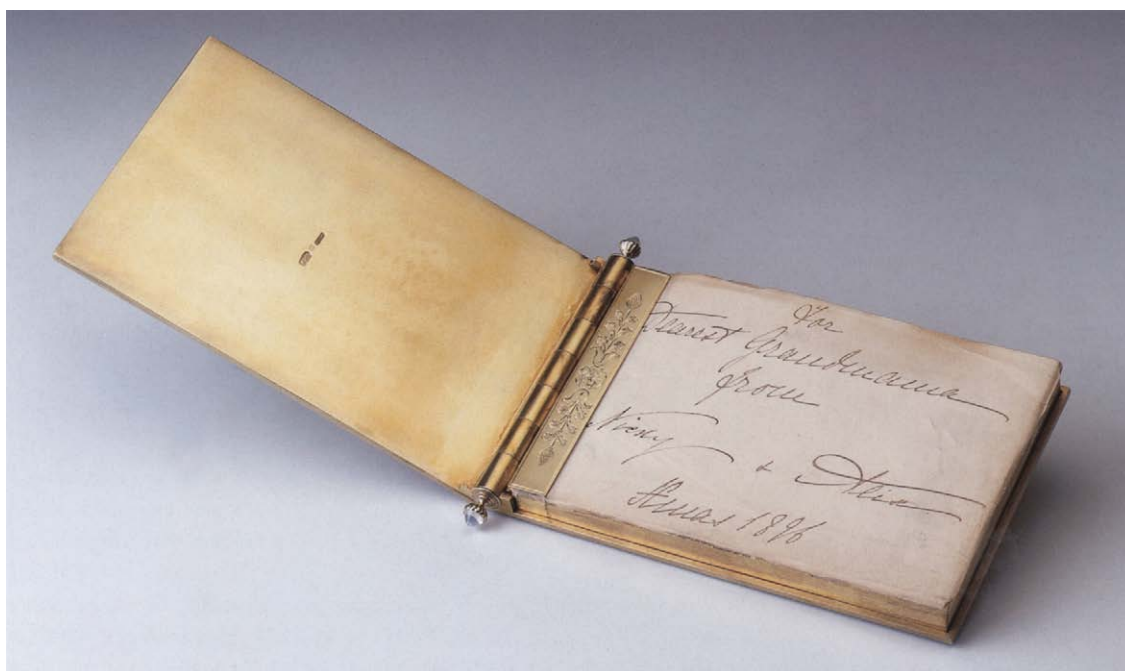 For
Dearest Grandmama
from
Nicky & Alix
Xmas 1896